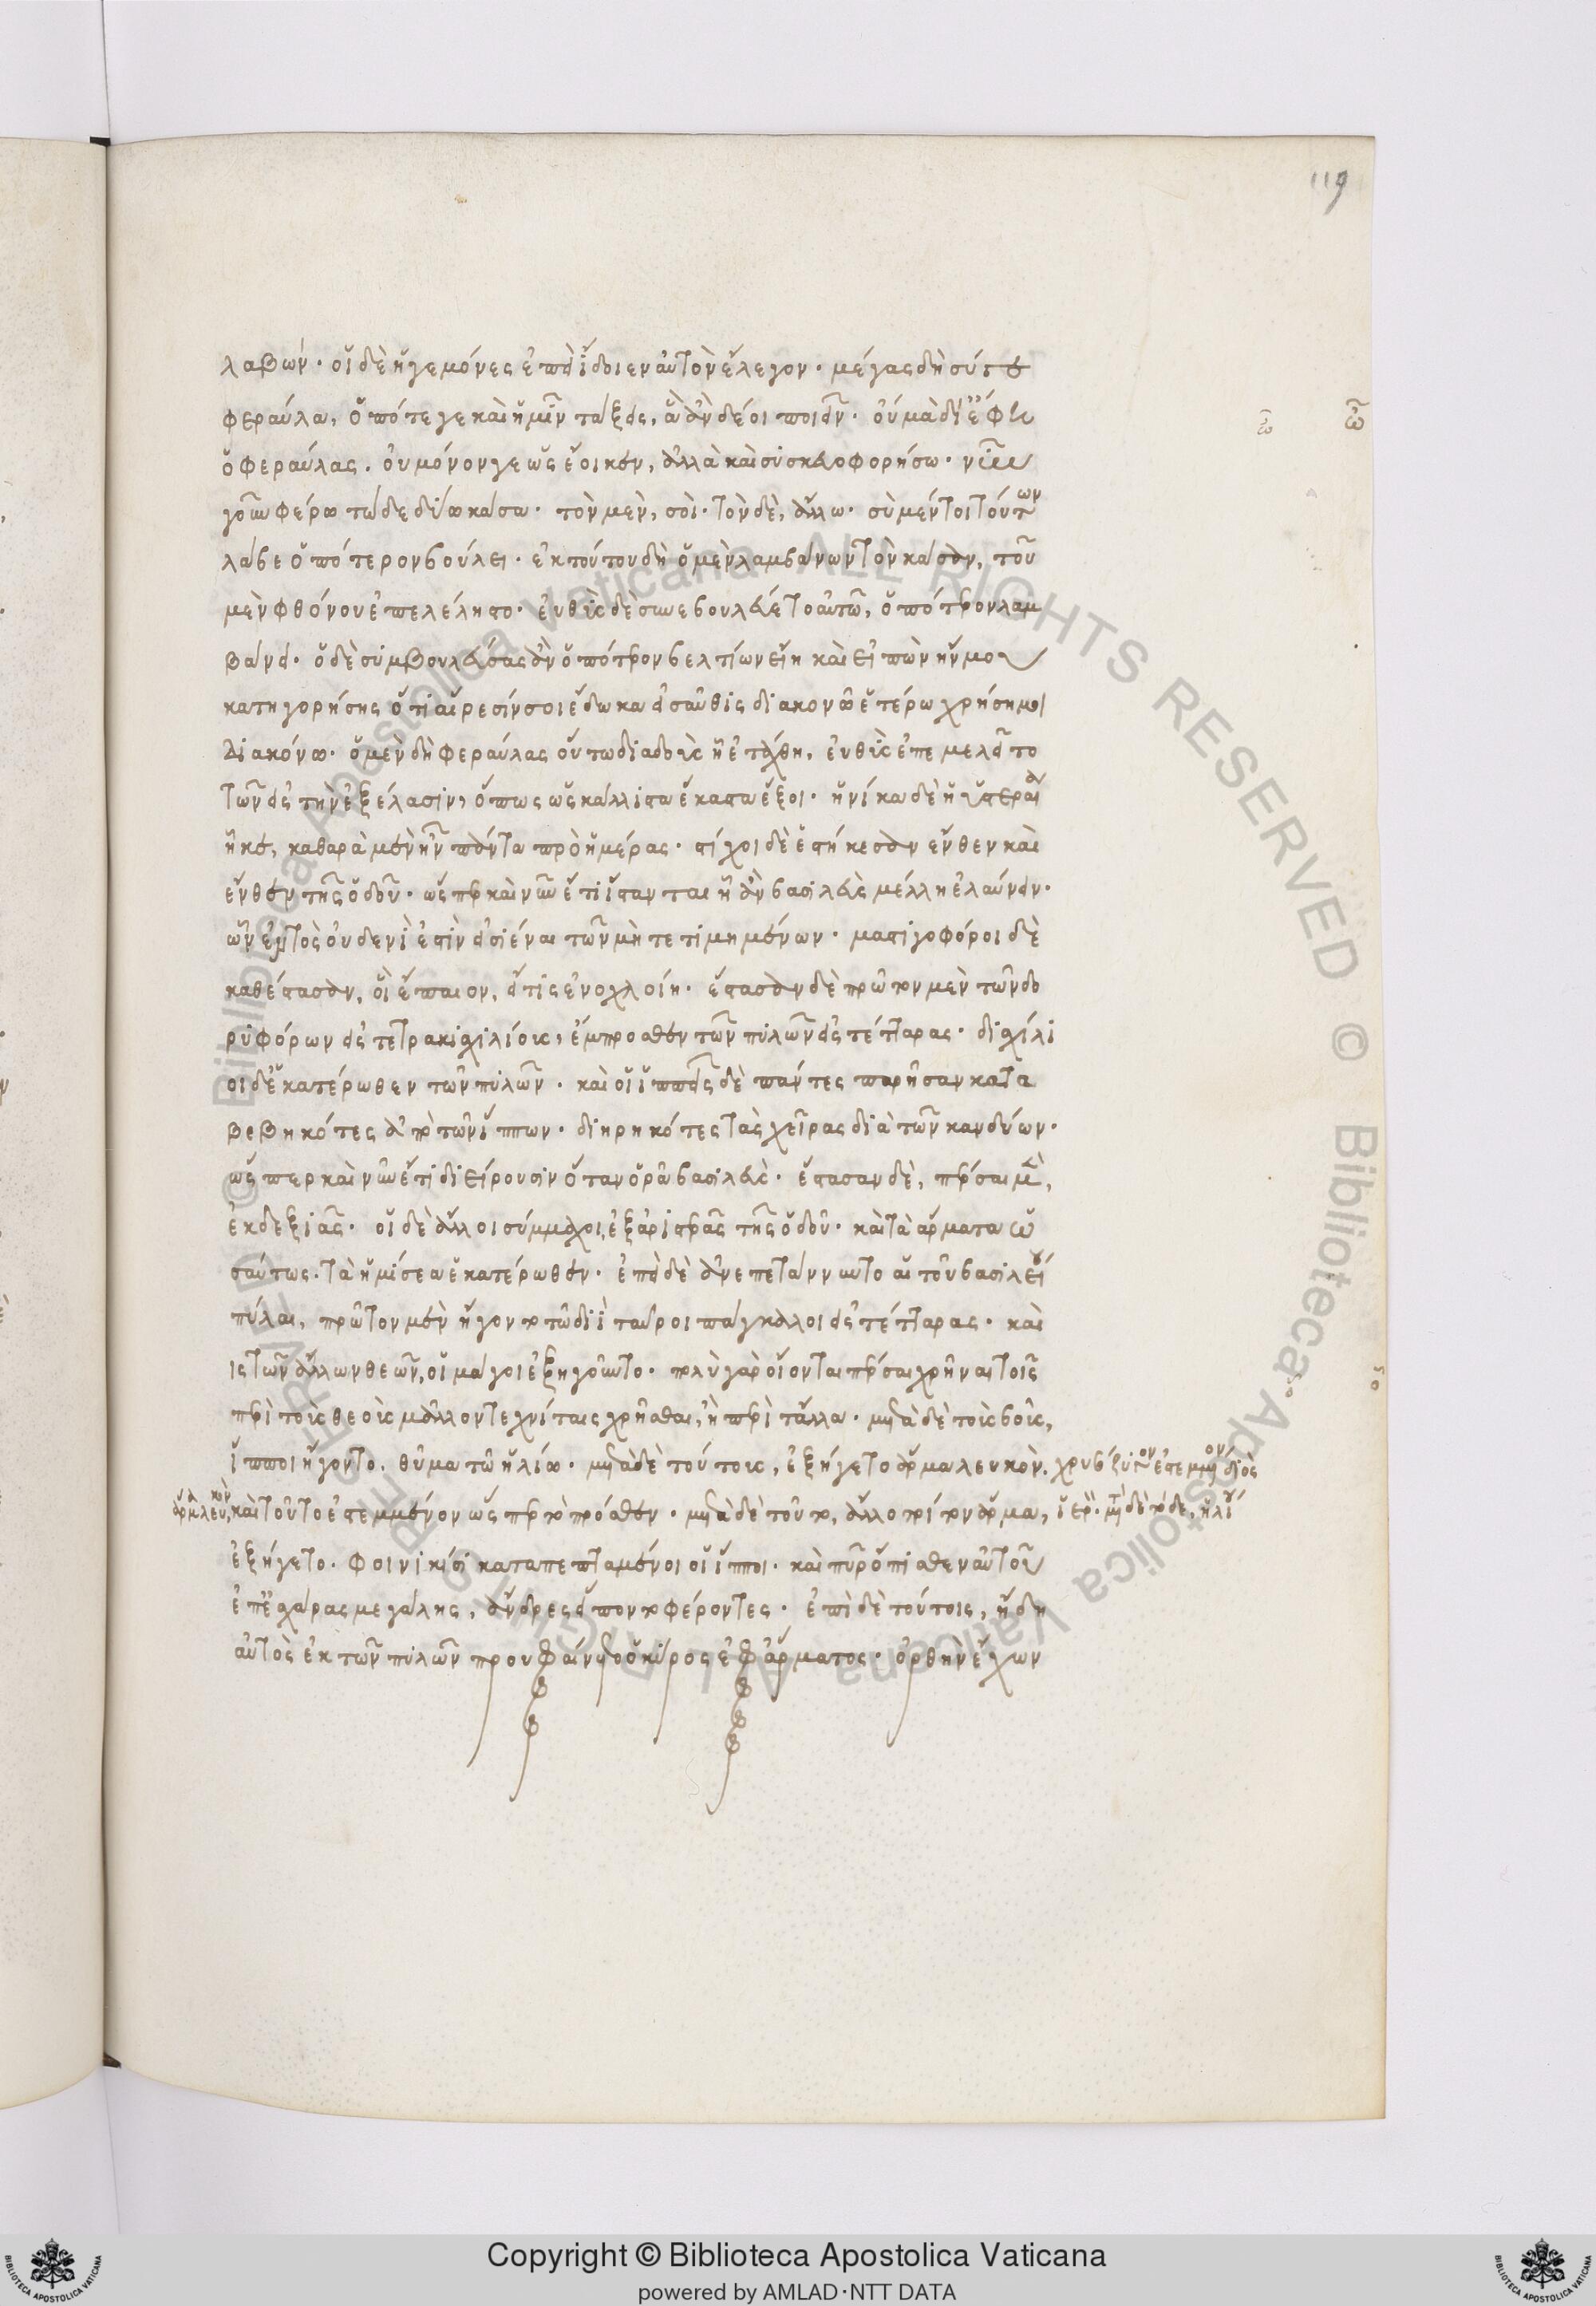 λαβών· οἱ δὲ ἡγεμόνες ἐπεὶ ἴδοιεν αὐτὸν ἔλεγον· μέγας δὴ σύ γε
φεραύλα, ὁπότε γε καὶ ἡμῖν τάξεις, ἃ ἂν δέοι ποιεῖν· οὐ μὰ δί' ἔφη
ὁ φεραύλας. οὐ μόνον γε ὡς ἔοικεν, ἀλλὰ καὶ συσκευοφορήσω· νῦν
γοῦν φέρω τώδε δύω κάσα· τὸν μὲν, σοὶ· τὸν δὲ, ἄλλω· σὺ μέντοι τούτων
λάβε ὁπότερον βούλει· ἐκ τούτου δὴ ὁ μὲν λαμβάνων τὸν κάσαν, τοῦ
μὲν φθόνου ἐπελέληστο· εὐθὺς δὲ συνεβουλεύετο αὐτῶ, ὁπότερον λαμ
βάνει· ὁ δὲ συμβουλεύσας ἂν ὁπότερον βελτίων εἴη καὶ εἰπὼν ἤν μου
κατηγορήσης ὅτι αἵρεσίν σοι ἔδωκα εἰσαῦθις διακονῶ ἑτέρω χρήση μοι
διακόνω· ὁ μὲν δὴ φεραύλας οὕτω διαδοὺς ἧ ἐτάχθη, εὐθὺς ἐπεμελεῖτο
τῶν εἰς τὴν ἐξέλασιν, ὅπως ὡς κάλλιστα ἕκαστα ἕξοι· ἡνίκα δὲ ἡ ὑστεραία
ἧκε, καθαρὰ μὲν ἦν πάντα πρὸ ἡμέρας· στίχοι δὲ ἑστήκεσαν ἔνθεν καὶ
ἔνθεν τῆς ὁδοῦ· ὥσπερ καὶ νῦν ἔτι ἵστανται ἧ ἂν βασιλεὺς μέλλη ἐλαύνειν·
ὧν ἐντὸς οὐδενὶ ἐστὶν εἰσιέναι τῶν μὴ τετιμημένων· μαστιγοφόροι δὲ
καθέστασαν, οἳ ἔπαιον, εἴ τις ἐνοχλοίη· ἕστασαν δὲ πρῶτον μὲν τῶν δο
ρυφόρων εἰς τετρακισχιλίους, ἔμπροσθεν τῶν πυλῶν εἰς τέτταρας· δισχίλι
οι δ' ἑκατέρωθεν τῶν πυλῶν· καὶ οἱ ἱππεῖς δὲ πάντες παρῆσαν κατα
βεβηκότες ἀπὸ τῶν ἵππων· διηρηκότες τὰς χεῖρας διὰ τῶν κανδύων·
ὥσπερ καὶ νῦν ἔτι διείρουσιν ὅταν ὁρᾶ βασιλεύς· ἕστασαν δὲ, πέρσαι μὲν,
ἐκ δεξιᾶς· οἱ δὲ ἄλλοι σύμμαχοι, ἐξ ἀριστερᾶς τῆς ὁδοῦ· καὶ τὰ ἅρματα ὡ
σαύτως. τὰ ἡμίσεα ἑκατέρωθεν· ἐπεὶ δὲ ἀνεπετάννυντο αἱ τοῦ βασιλείου
πύλαι, πρῶτον μὲν ἤγοντο τῶ διὶ ταῦροι πάγκαλοι εἰς τέτταρας· καὶ
ις τῶν ἄλλων θεῶν, οἱ μάγοι ἐξηγοῦντο· πολὺ γὰρ οἴονται πέρσαι χρῆναι τοῖς
περὶ τοὺς θεοὺς μᾶλλον τεχνίταις χρῆσθαι, ἢ περὶ τἆλλα· μετὰ δὲ τοὺς βοῦς,
ἵπποι ἤγοντο. θῦμα τῶ ἡλίω· μετὰ δὲ τούτους, ἐξήγετο ἅρμα λευκὸν. χρυσόζυγον ἐστεμμένον διὸς
ἅρμα λευκὸν, καὶ τοῦτο ἐστεμμένον ὥσπερ τὸ πρόσθεν· μετὰ δὲ τοῦτο, ἄλλο τρίτον ἅρμα, ἱερὸν. μετὰ δὲ τόδε, ἡλίου
ἐξήγετο. φοινικίσι καταπεπταμένοι οἱ ἵπποι· καὶ πῦρ ὄπισθεν αὐτοῦ
ἐπ' ἐσχάρας μεγάλης, ἄνδρες εἵποντο φέροντες· ἐπὶ δὲ τούτοις, ἤδη
αὐτὸς ἐκ τῶν πυλῶν προυφαίνετο ὁ κῦρος ἐφ' ἅρματος· ὀρθὴν ἔχων
119
Copyright © Biblioteca Apostolica Vaticana
powered by AMLAD·NTT DATA